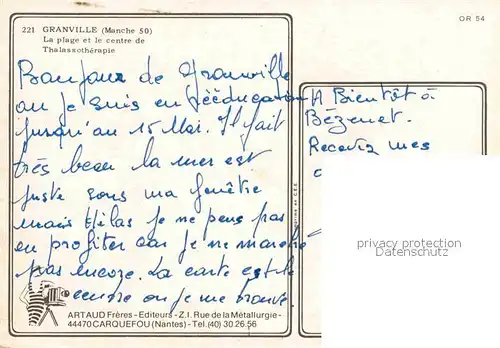 221 GRANVILLE (Manche 50)
La plage et le centre de
Thalassothérapie
OR 54
Bonjour de Granville
ou je suis en rééducation
jusqu'au 15 Mai. Il fait
très beau la mer est
juste sous ma fenêtre
mais Hélas je ne peus pas
en profiter car je ne marche
pas encore. La carte est le
centre ou je me trouve.
A Bientôt à
Bézenet.
Recevez mes
privacy protection
Datenschutz
ARTAUD Frères - Editeurs - Z.I. Rue de la Métallurgie -
44470 CARQUEFOU (Nantes) - Tel. (40) 30.26.56